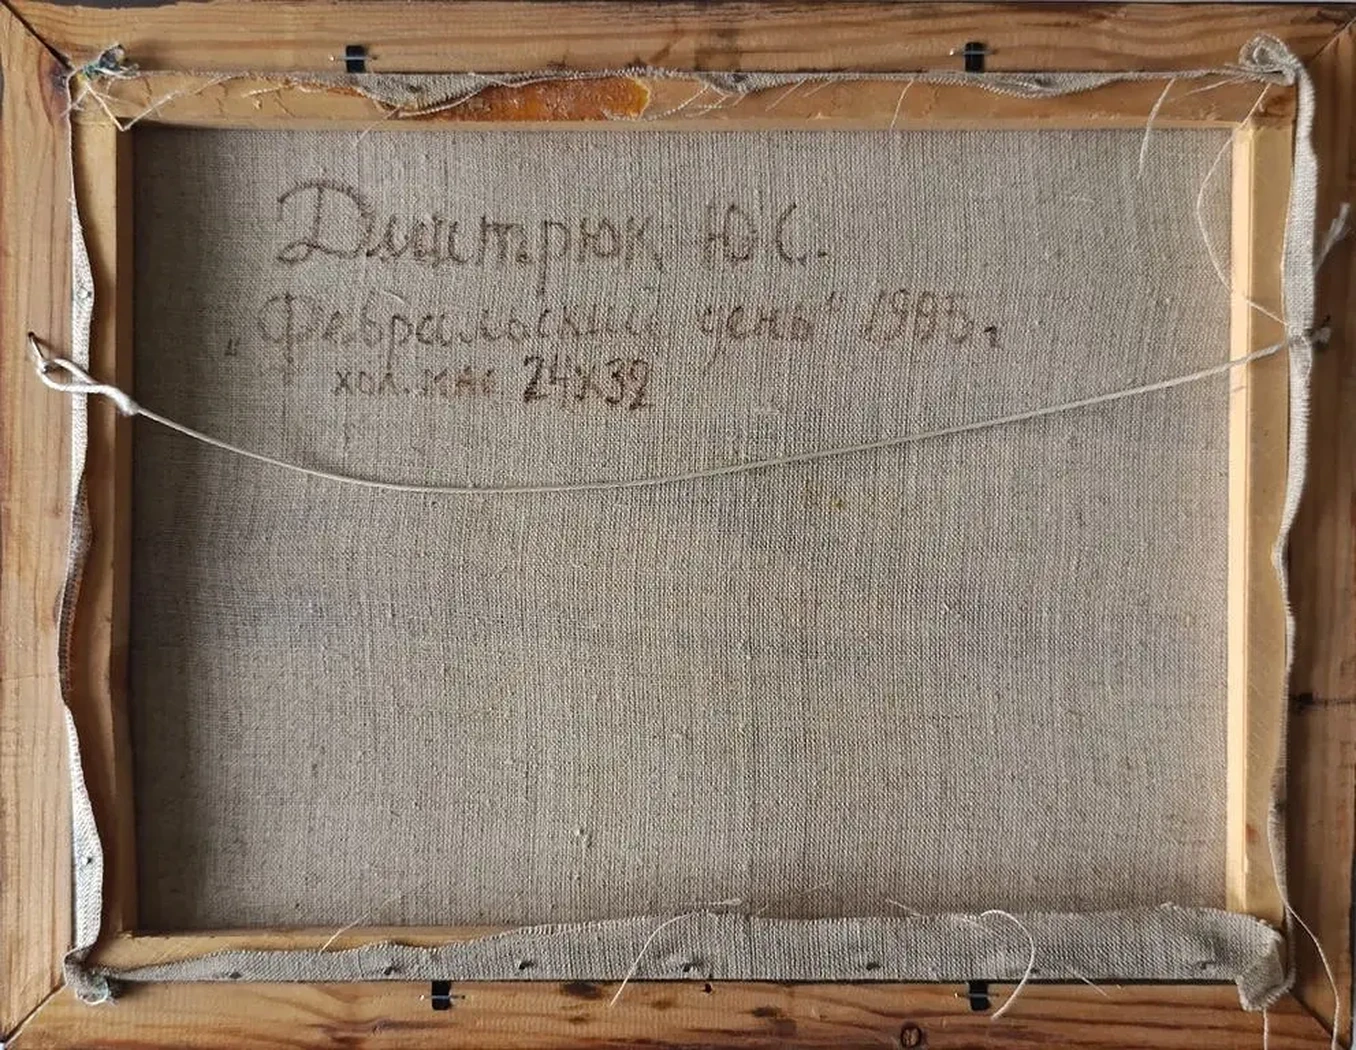 Дмитрюк Ю С.
„Февральский день" 1983г
хол. мас 24х32